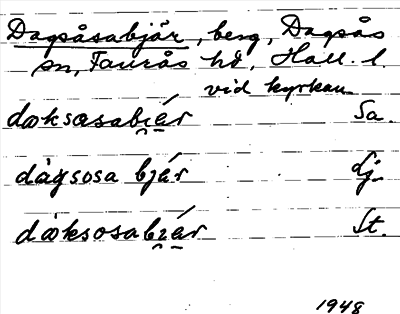 Dagsåsabjär, berg, Dagsås
sn, Faurås hd, Hall. l.
vid kyrkan
dœksœsabi̯ér Sa.
dàgsosa bjér Lj.
dœ̀ksosabi̯ér St.
1948